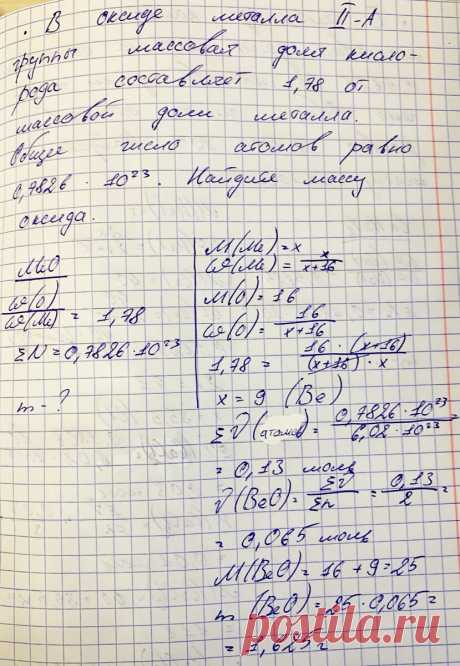 · В оксиде металла II-A
группы массовая доля кисло-
рода составляет 1,78 от
массовой доли металла.
Общее число атомов равно
0,7826 10²³. Найдите массу
оксида.
MeO
ω(O)/ω(Me) = 1,78
ΣN = 0,7826·10²³
m - ?
M(Me) = x
ω(Me) = x/(x+16)
M(O) = 16
ω(O) = 16/(x+16)
1,78 = 16·(x+16)/((x+16)·x)
x = 9 (Be)
Σν(атомов) = 0,7826·10²³/6,02·10²³ =
= 0,13 моль
ν(BeO) = Σν/Σn = 0,13/2 =
= 0,065 моль
M(BeO) = 16 + 9 = 25
m (BeO) = 25·0,065 =
= 1,625 г
postila.ru